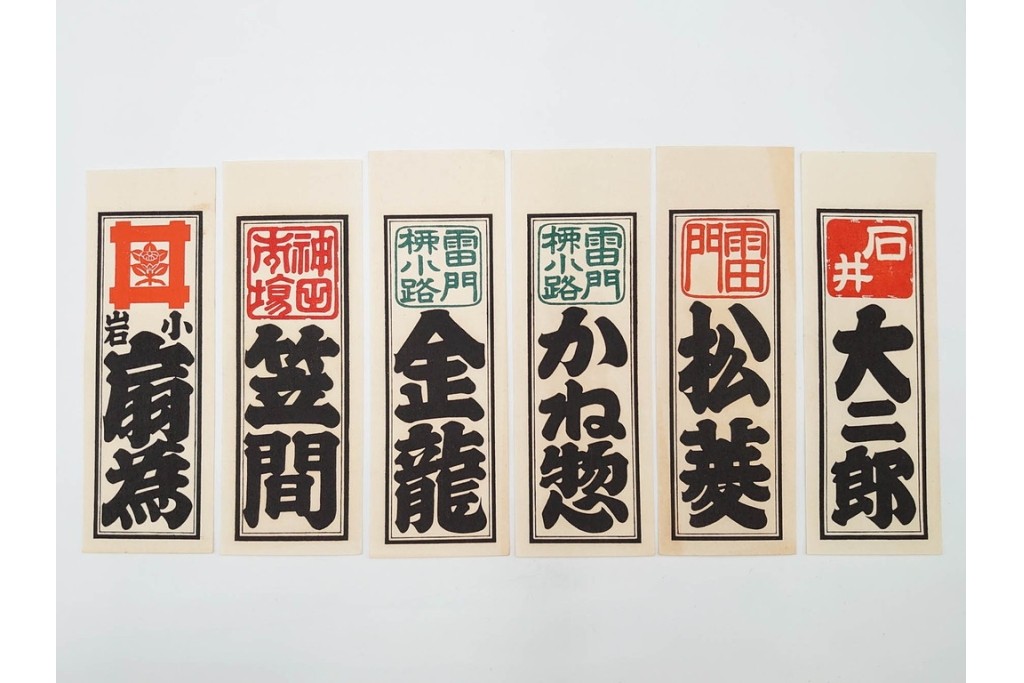 石井
大二郎
雷門
松菱
雷門
柳小路
かね惣
雷門
柳小路
金龍
神田
市場
笠間
小岩
扇為